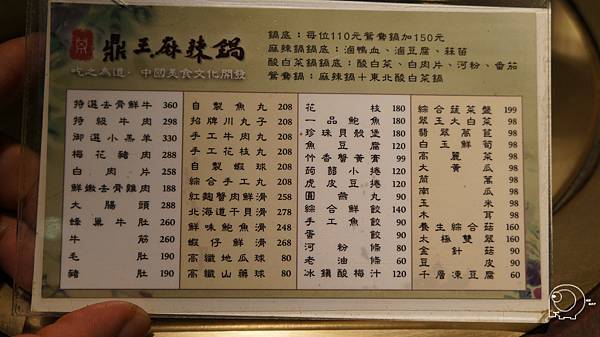 鼎王麻辣鍋
吃之為道．中國美食文化開發
鍋底：每位110元鴛鴦鍋加150元
麻辣鍋鍋底：滷鴨血、滷豆腐、蒜苗
酸白菜鍋鍋底：酸白菜、白肉片、河粉、番茄
鴛鴦鍋：麻辣鍋＋東北酸白菜鍋
特選去骨鮮牛 360
特級牛肉 298
御選小羔羊 330
梅花豬肉 288
白肉片 258
鮮嫩去骨雞肉 188
大腸頭 288
蜂巢牛肚 260
牛筋 260
毛肚 190
豬肚 190
自製魚丸 208
招牌川丸子 208
手工牛肉丸 208
手工花枝丸 208
自製蝦球 208
綜合手工丸 208
紅麴蟹肉鮮滑 258
北海道干貝滑 278
鮮味鮑魚滑 248
蝦仔鮮滑 268
高纖地瓜球 80
高纖山藥球 80
花枝 180
一品鮑魚 180
珍珠貝殼堡 180
魚豆腐 120
竹香蟹黃寶 99
蒟蒻小捲 120
虎皮豆捲 120
圓燕丸 90
綜合鮮餃 140
手工魚餃 90
蛋餃 90
河粉條 60
老油條 60
冰鎮酸梅汁 120
綜合蔬菜盤 199
翠玉大白菜 98
翡翠萵苣 98
白玉鮮筍 98
高麗菜 98
大黃瓜 98
茼蒿 98
南瓜 98
玉米 98
木耳 98
養生綜合菇 160
太極雙翠 160
金針菇 90
豆皮 90
千層凍豆腐 60